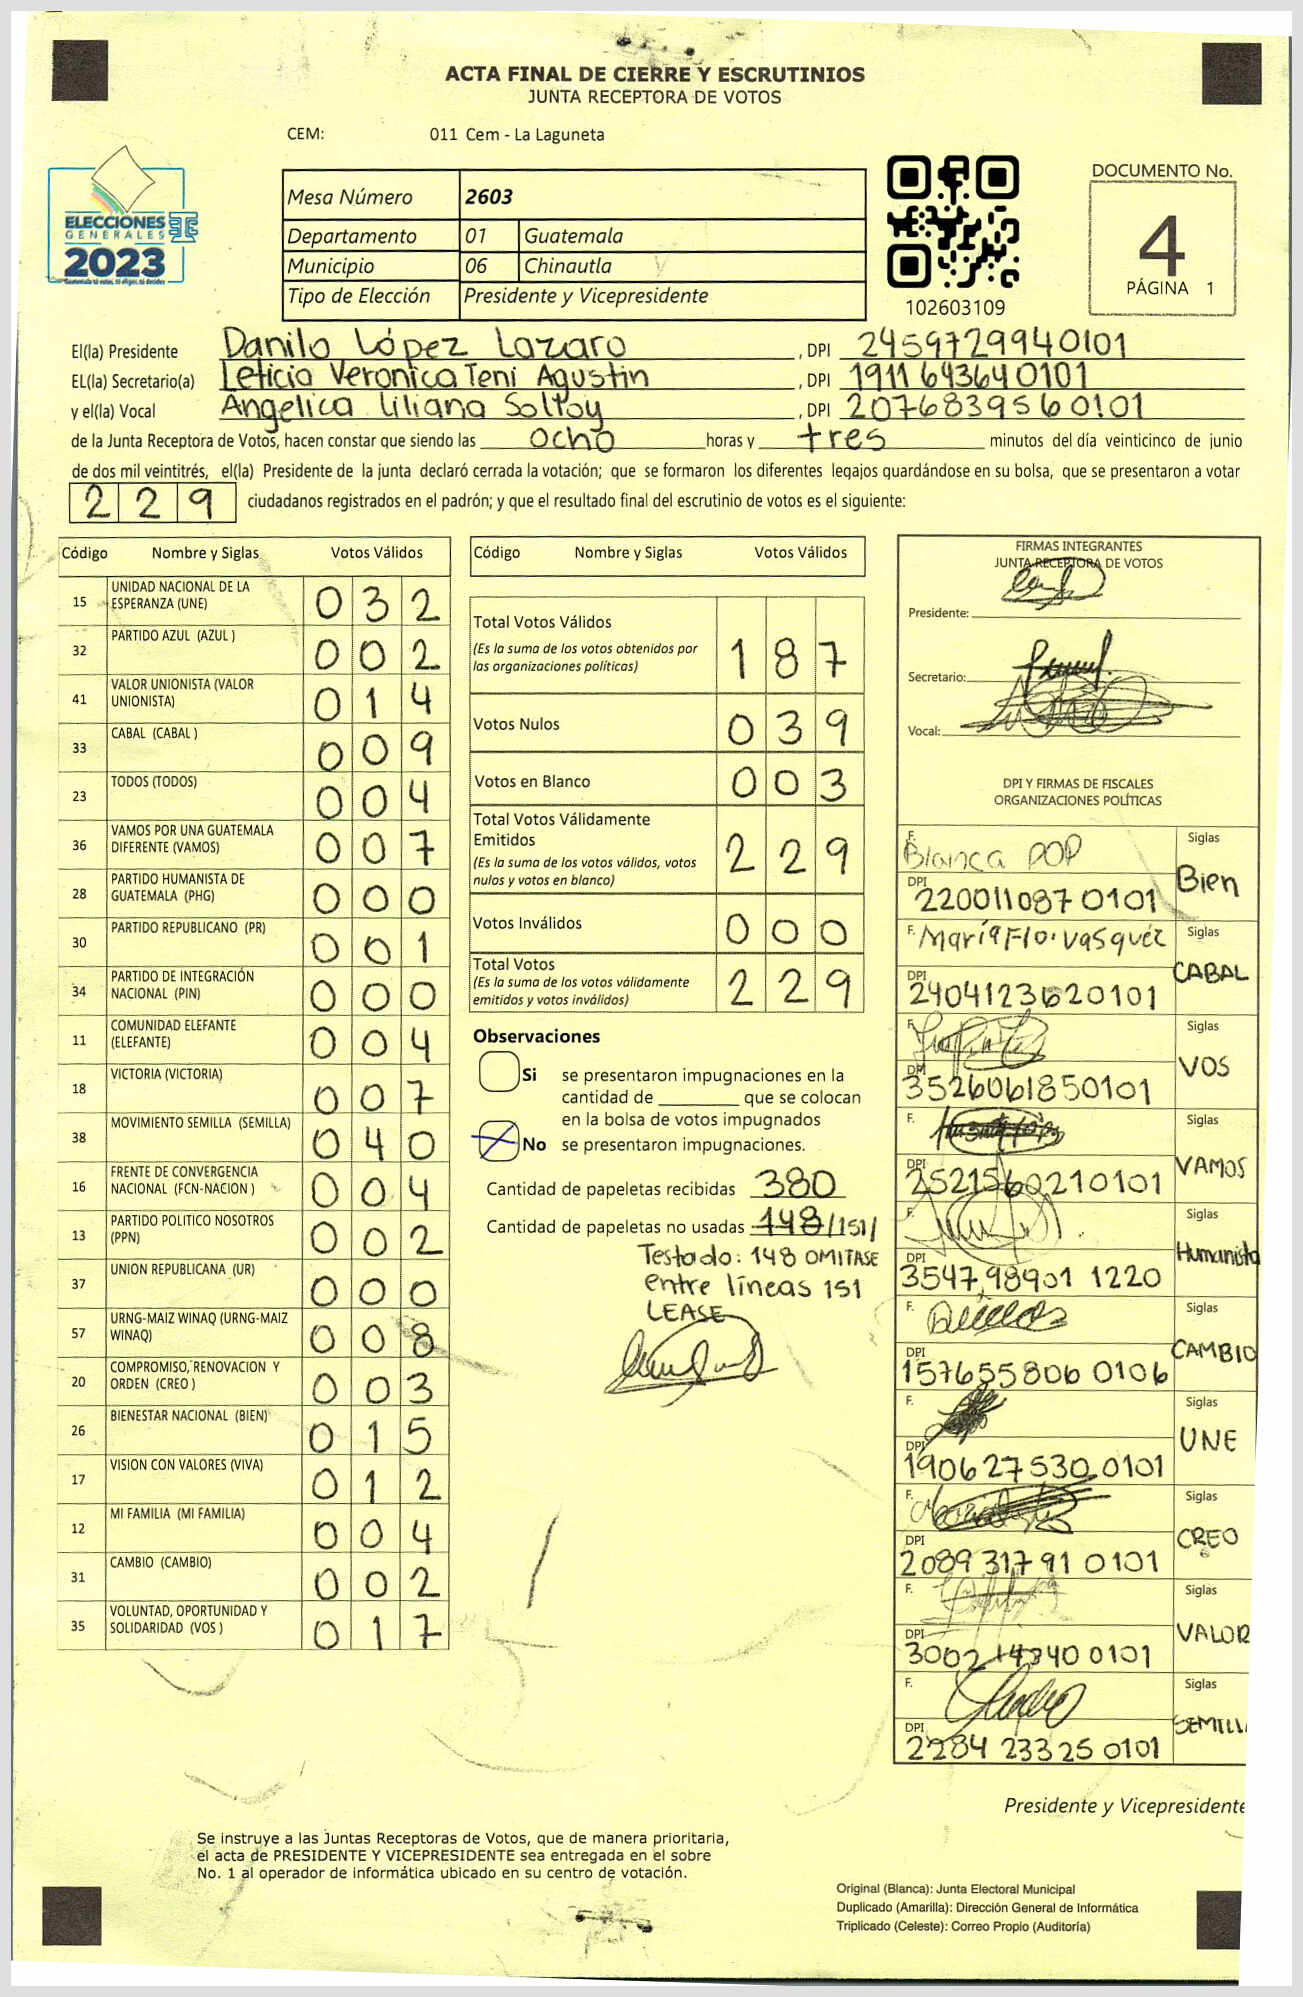 ACTA FINAL DE CIERRE Y ESCRUTINIOS
JUNTA RECEPTORA DE VOTOS
CEM: 011 Cem - La Laguneta
ELECCIONES
GENERALES
2023
Mesa Número 2603
Departamento 01 Guatemala
Municipio 06 Chinautla
Tipo de Elección Presidente y Vicepresidente
102603109
DOCUMENTO No.
4
PÁGINA 1
El(la) Presidente Danilo López Lazaro , DPI 2459729940101
EL(la) Secretario(a) Leticia Veronica Teni Agustin , DPI 1911643640101
y el(la) Vocal Angelica Liliana Soltoy , DPI 2076839560101
de la Junta Receptora de Votos, hacen constar que siendo las ocho horas y tres minutos del día veinticinco de junio
de dos mil veintitrés, el(la) Presidente de la junta declaró cerrada la votación; que se formaron los diferentes legajos guardándose en su bolsa, que se presentaron a votar
229 ciudadanos registrados en el padrón; y que el resultado final del escrutinio de votos es el siguiente:
Código Nombre y Siglas Votos Válidos
15 UNIDAD NACIONAL DE LA ESPERANZA (UNE) 032
32 PARTIDO AZUL (AZUL ) 002
41 VALOR UNIONISTA (VALOR UNIONISTA) 014
33 CABAL (CABAL ) 009
23 TODOS (TODOS) 004
36 VAMOS POR UNA GUATEMALA DIFERENTE (VAMOS) 007
28 PARTIDO HUMANISTA DE GUATEMALA (PHG) 000
30 PARTIDO REPUBLICANO (PR) 001
34 PARTIDO DE INTEGRACIÓN NACIONAL (PIN) 000
11 COMUNIDAD ELEFANTE (ELEFANTE) 004
18 VICTORIA (VICTORIA) 007
38 MOVIMIENTO SEMILLA (SEMILLA) 040
16 FRENTE DE CONVERGENCIA NACIONAL (FCN-NACION ) 004
13 PARTIDO POLITICO NOSOTROS (PPN) 002
37 UNION REPUBLICANA (UR) 000
57 URNG-MAIZ WINAQ (URNG-MAIZ WINAQ) 008
20 COMPROMISO, RENOVACION Y ORDEN (CREO ) 003
26 BIENESTAR NACIONAL (BIEN) 015
17 VISION CON VALORES (VIVA) 012
12 MI FAMILIA (MI FAMILIA) 004
31 CAMBIO (CAMBIO) 002
35 VOLUNTAD, OPORTUNIDAD Y SOLIDARIDAD (VOS ) 017
Código Nombre y Siglas Votos Válidos
Total Votos Válidos 187
(Es la suma de los votos obtenidos por
las organizaciones políticas)
Votos Nulos 039
Votos en Blanco 003
Total Votos Válidamente
Emitidos 229
(Es la suma de los votos válidos, votos
nulos y votos en blanco)
Votos Inválidos 000
Total Votos 229
(Es la suma de los votos válidamente
emitidos y votos inválidos)
Observaciones
Si se presentaron impugnaciones en la
cantidad de ________ que se colocan
en la bolsa de votos impugnados
No se presentaron impugnaciones.
Cantidad de papeletas recibidas 380
Cantidad de papeletas no usadas 148/151/
Testado: 148 OMITASE
entre líneas 151
LEASE
FIRMAS INTEGRANTES
JUNTA RECEPTORA DE VOTOS
Presidente:
Secretario:
Vocal:
DPI Y FIRMAS DE FISCALES
ORGANIZACIONES POLÍTICAS
F. Blanca POP Siglas
DPI 2200110870101 Bien
F. María Flor Vasquez Siglas
DPI 2404123620101 CABAL
F. Siglas
DPI 3526061850101 VOS
F. Siglas
DPI 2521560210101 VAMOS
F. Siglas
DPI 3547989011220 Humanista
F. Siglas
DPI 1576558060106 CAMBIO
F. Siglas
DPI 1906275300101 UNE
F. Siglas
DPI 2089317910101 CREO
F. Siglas
DPI 3002143400101 VALOR
F. Siglas
DPI 2284233250101 SEMILL
Presidente y Vicepresidente
Se instruye a las Juntas Receptoras de Votos, que de manera prioritaria,
el acta de PRESIDENTE Y VICEPRESIDENTE sea entregada en el sobre
No. 1 al operador de informática ubicado en su centro de votación.
Original (Blanca): Junta Electoral Municipal
Duplicado (Amarilla): Dirección General de Informática
Triplicado (Celeste): Correo Propio (Auditoría)